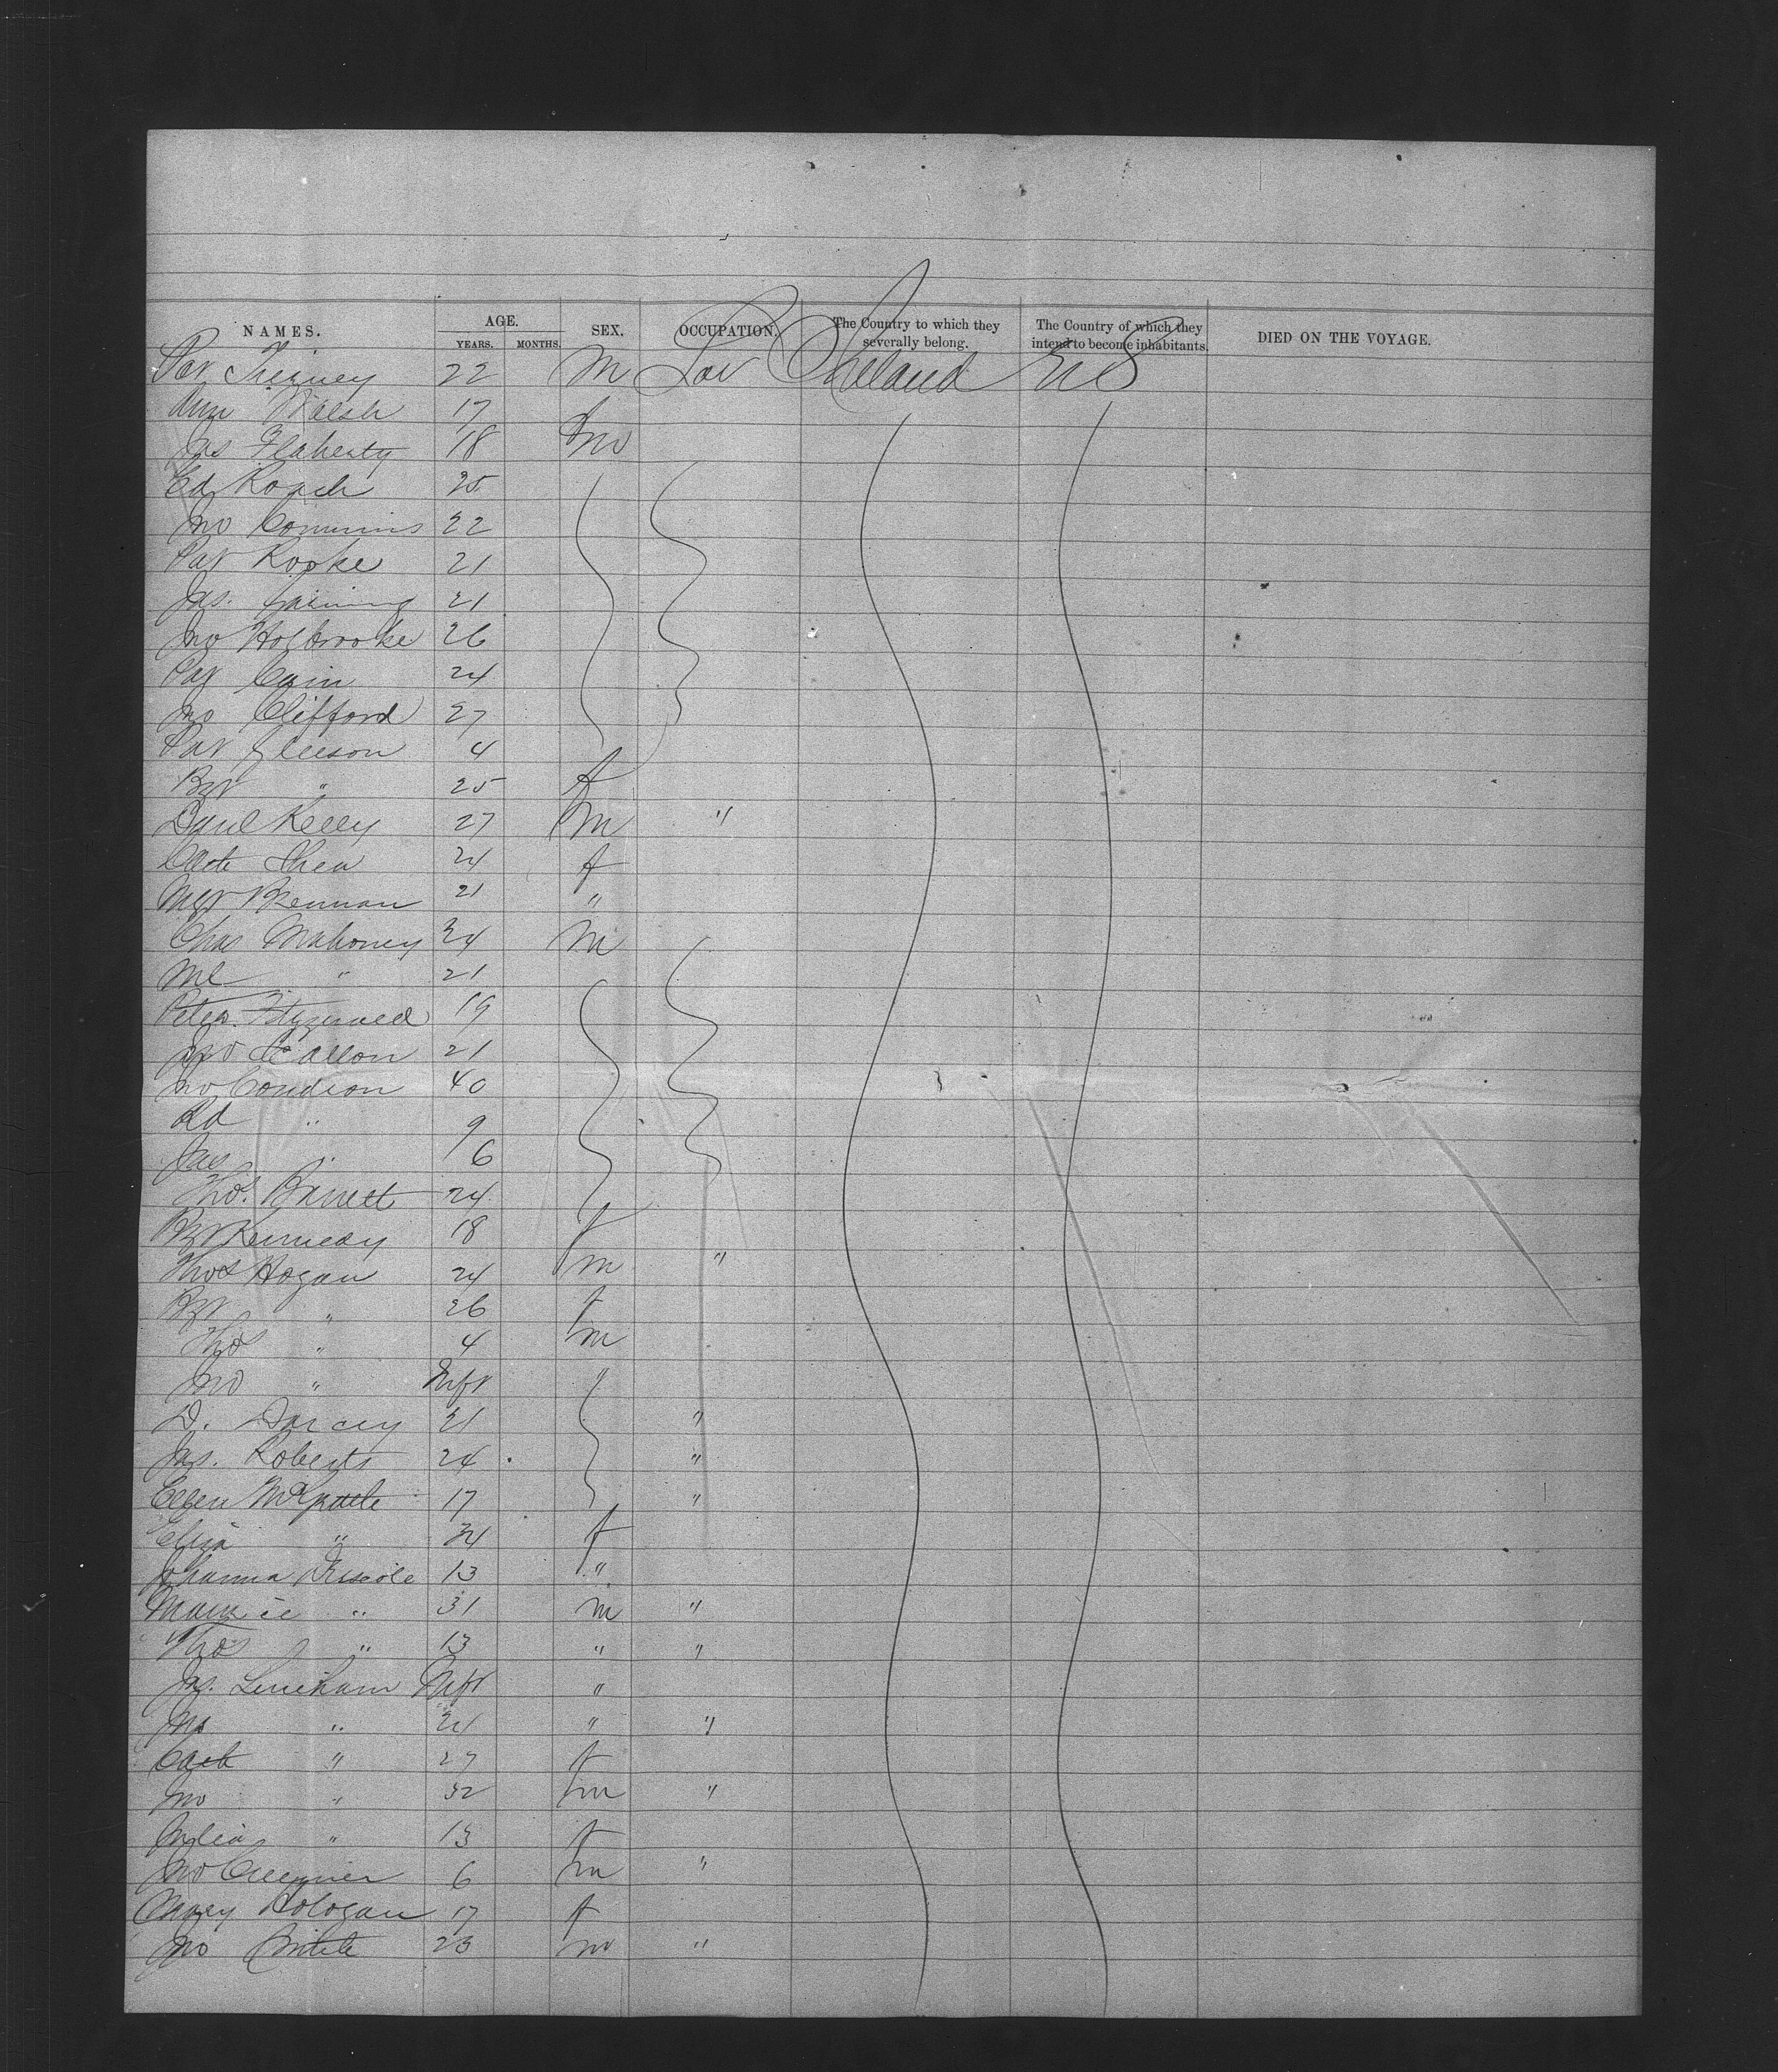 NAMES. AGE. SEX. OCCUPATION. The Country to which they severally belong. The Country of which they intend to become inhabitants. DIED ON THE VOYAGE.
YEARS. MONTHS.
Pat Tierney 22 M Lab Ireland U S
Ann Walsh 17 f
Jas Flaherty 18 m
Ed Roach 25
Jno Commins 22
Pat Rooke 21
Jas. 21
Jno Holbrooke 26
Pat Cain 24
Jno Clifford 27
Pat Gleeson 4
Bgt " 25 f
Danl Kelly 27 m "
Cath Shea 24 f
Mgt Brennan 21 "
Chas Mahoney 24 m
Ml " 21
Peter Fitzgerald 19
Jno Scallon 21
Jno Condron 40
Rd " 9
Jas " 6
Thos. Barrett 24
Bgt Kennedy 18 f
Thos Hogan 24 m "
Bgt " 26 f
Thos " 4 m
Jno " Inft "
D. Darcey 21 "
Jas. Roberts 24 "
Ellen 17 "
Eliza " 24 f
Johanna Driscole 13 "
Maurice " 31 m "
Thos " 13 " "
Jas. Linehan Inft "
Jno " 21 " "
Cath " 27 f
Jno " 32 m "
Julia " 13 f
Jno 6 m "
Mary Hologan 17 f
Jno 23 m "